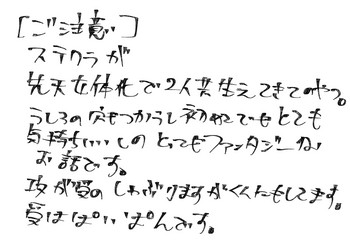 [ご注意]
ステクラが
先天女体化で2人共生えてきてのやつ。
うしろの穴もつかうし初めてでもとても
気持ちいいしのとってもファンタジーな
お話です。
攻が受のしゃぶりますがくんにもしてます。
受はぱいぱんです。